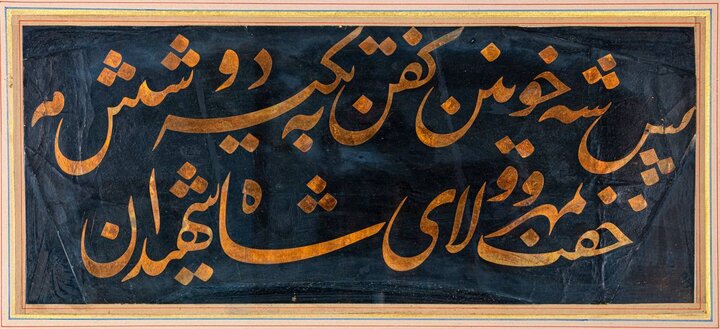 پیش شه خونین کفن به تکبیر دو شش مه
خفت بمهر و ولای شاه شهیدان